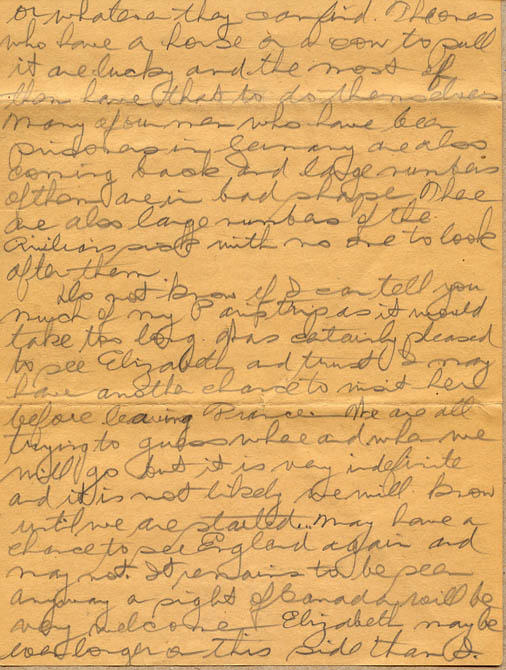 or whatever they can find. The ones
who have a horse or a cow to pull
it are lucky and the most of
them have that to do themselves
Many of our men who have been
prisoners in Germany are also
coming back and large numbers
of them are in bad shape. There
are also large numbers of the
civilians sick with no one to look
after them.
Do not know if I can tell you
much of my Paris trip as it would
take too long. Was certainly pleased
to see Elizabeth and trust I may
have another chance to visit her
before leaving France. We are all
trying to guess where and when we
will go but it is very indefinite
and it is not likely we will know
until we are started. May have a
chance to see England again and
may not. It remains to be seen
anyway a sight of Canada will be
very welcome. Elizabeth may be
longer on this side than I.